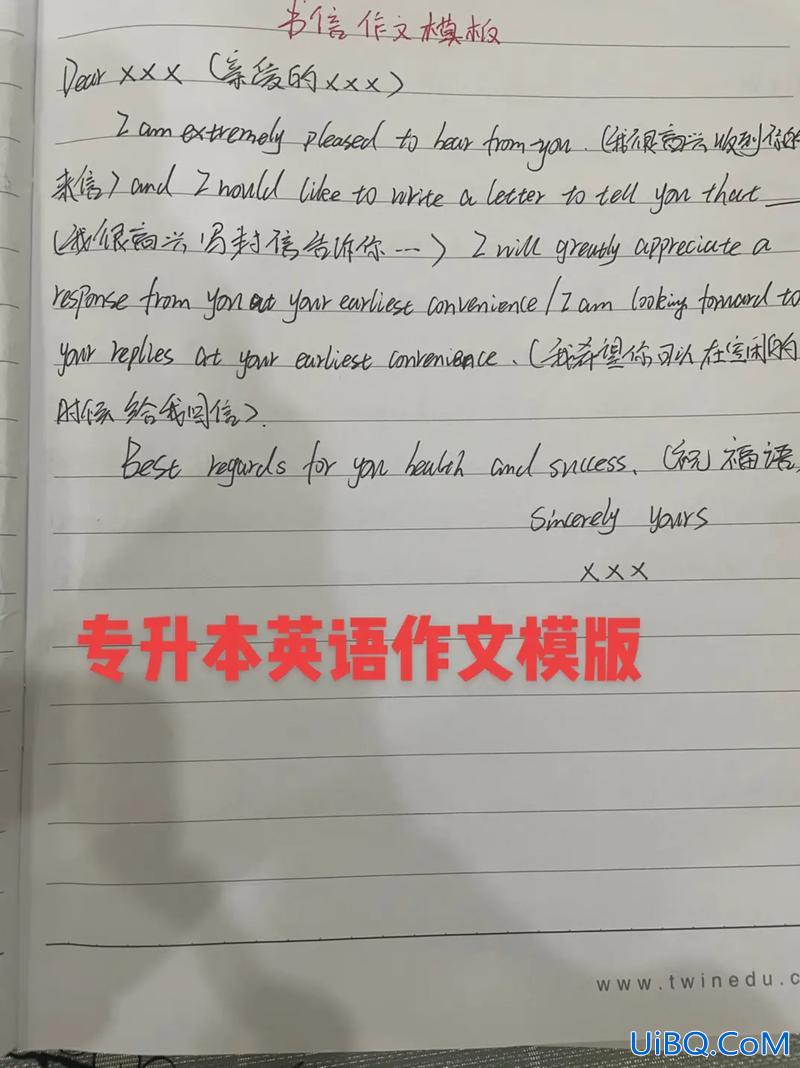 书信作文模板
Dear xxx (亲爱的xxx)
I am extremely pleased to hear from you. (我很高兴收到你的
来信) and I would like to write a letter to tell you that __
(我很高兴写封信告诉你…) I will greatly appreciate a
response from you at your earliest convenience / I am looking forward to
your replies at your earliest convenience. (我希望你可以在空闲的
时候给我回信).
Best regards for you health and success. (祝福语)
Sincerely yours
xxx
专升本英语作文模版
www.twinedu.c
UiBQ.CoM